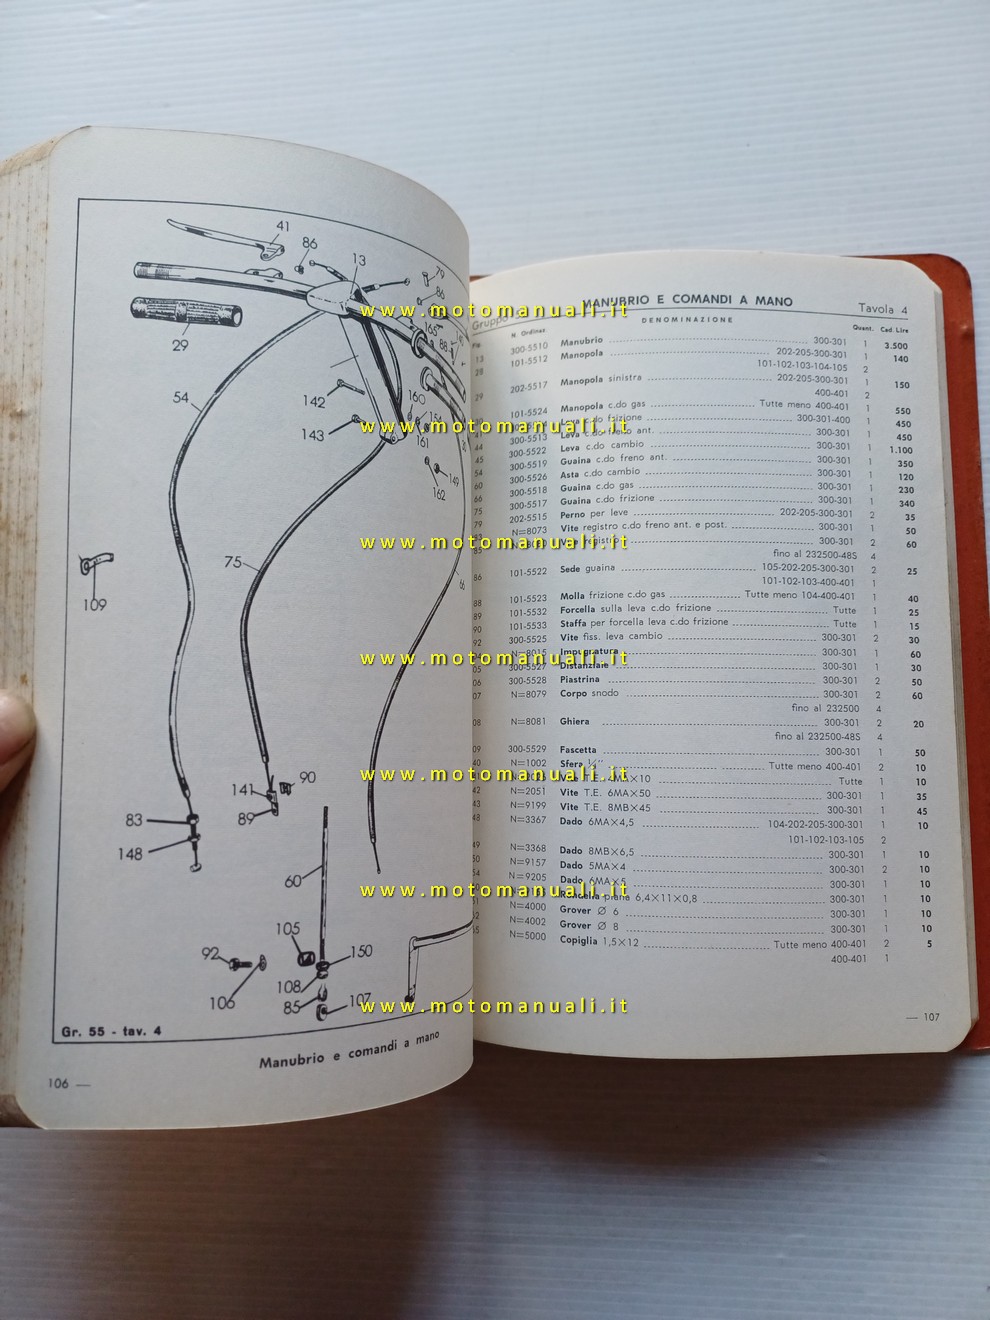 41
86
13
79
86
165
88
29
54
142
160
154
143
161
149
162
75
66
109
141
90
89
83
148
60
105
92
150
106
108
85
107
Gr. 55 - tav. 4
Manubrio e comandi a mano
106 —
www.motomanuali.it
www.motomanuali.it
www.motomanuali.it
www.motomanuali.it
www.motomanuali.it
www.motomanuali.it
www.motomanuali.it
MANUBRIO E COMANDI A MANO
Gruppo
Tavola 4
N. Ordinaz.
DENOMINAZIONE
Quant.
Cad. Lire
13 300-5510 Manubrio 300-301 1 3.500
28 101-5512 Manopola 202-205-300-301 1 140
101-102-103-104-105 2
29 202-5517 Manopola sinistra 202-205-300-301 1 150
400-401 2
101-5524 Manopola c.do gas Tutte meno 400-401 1 550
41 Leva c.do frizione 300-301-400 1 450
44 300-5513 Leva c.do freno ant. 300-301 1 450
45 300-5522 Leva c.do cambio 300-301 1 1.100
54 300-5519 Guaina c.do freno ant. 300-301 1 350
60 300-5526 Asta c.do cambio 300-301 1 120
66 300-5518 Guaina c.do gas 300-301 1 230
75 300-5517 Guaina c.do frizione 300-301 1 340
79 202-5515 Perno per leve 202-205-300-301 2 35
N=8073 Vite registro c.do freno ant. e post. 300-301 1 50
85 Vite registro 300-301 2 60
fino al 232500-48S 4
86 101-5522 Sede guaina 105-202-205-300-301 2 25
101-102-103-400-401 1
88 101-5523 Molla frizione c.do gas Tutte meno 104-400-401 1 40
89 101-5532 Forcella sulla leva c.do frizione Tutte 1 25
90 101-5533 Staffa per forcella leva c.do frizione Tutte 1 15
92 300-5525 Vite fiss. leva cambio 300-301 2 30
N=8015 Impugnatura 300-301 1 60
05 300-5527 Distanziale 300-301 1 30
06 300-5528 Piastrina 300-301 2 50
07 N=8079 Corpo snodo 300-301 2 60
fino al 232500 4
08 N=8081 Ghiera 300-301 2 20
fino al 232500-48S 4
09 300-5529 Fascetta 300-301 1 50
40 N=1002 Sfera ¼" Tutte meno 400-401 2 10
T.E. 5MA×10 Tutte 1 10
42 N=2051 Vite T.E. 6MA×50 300-301 1 35
43 N=9199 Vite T.E. 8MB×45 300-301 1 45
48 N=3367 Dado 6MA×4,5 104-202-205-300-301 1 10
101-102-103-105 2
49 N=3368 Dado 8MB×6,5 300-301 1 10
50 N=9157 Dado 5MA×4 300-301 2 10
54 N=9205 Dado 6MA×5 300-301 1 10
Rondella piana 6,4×11×0,8 300-301 1 10
N=4000 Grover Ø 6 300-301 1 10
N=4002 Grover Ø 8 300-301 1 10
N=5000 Copiglia 1,5×12 Tutte meno 400-401 2 5
400-401 1
— 107